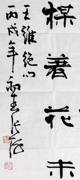 楳著花未
王維絕句
丙戌年